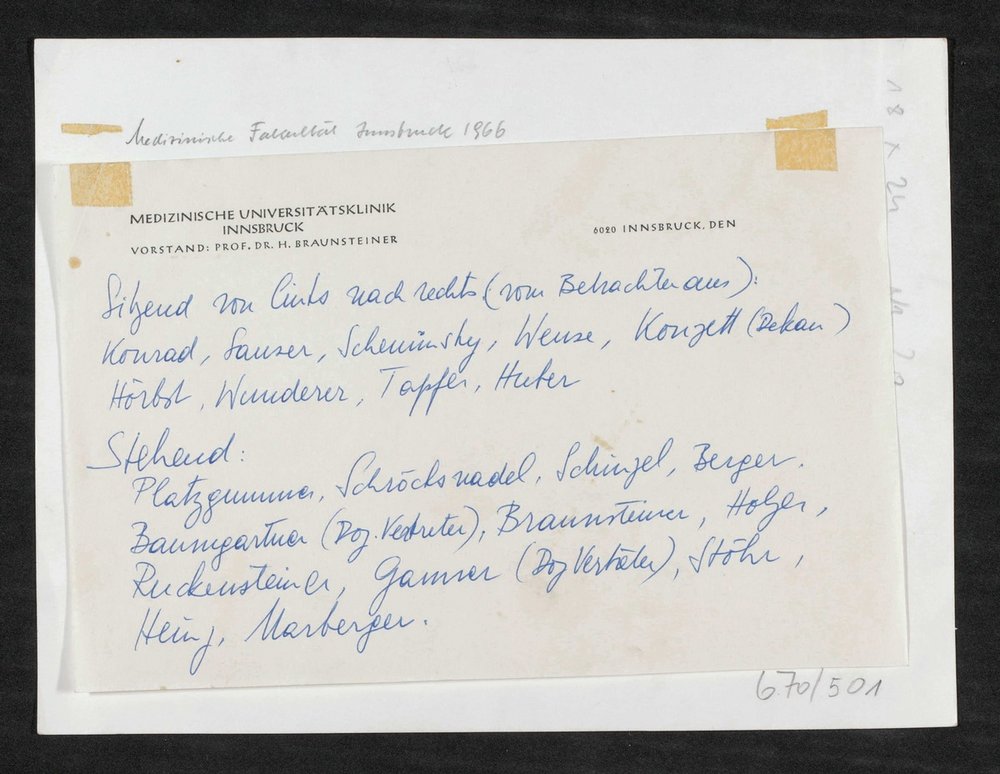 Medizinische Fakultät Innsbruck 1966
MEDIZINISCHE UNIVERSITÄTSKLINIK
INNSBRUCK
VORSTAND: PROF. DR. H. BRAUNSTEINER
6020 INNSBRUCK, DEN
Sitzend von links nach rechts (vom Betrachter aus):
Konrad, Sauser, Scheminzky, Wense, Konzett (Dekan)
Hörbst, Wunderer, Tapfer, Huber
Stehend:
Platzgummer, Schröcksnadel, Schinzel, Berger,
Baumgartner (Doz. Vertreter), Braunsteiner, Holzer,
Ruckensteiner, Gamner (Doz Vertreter), Stöhr,
Heinz, Marberger.
670/501
18 x 24